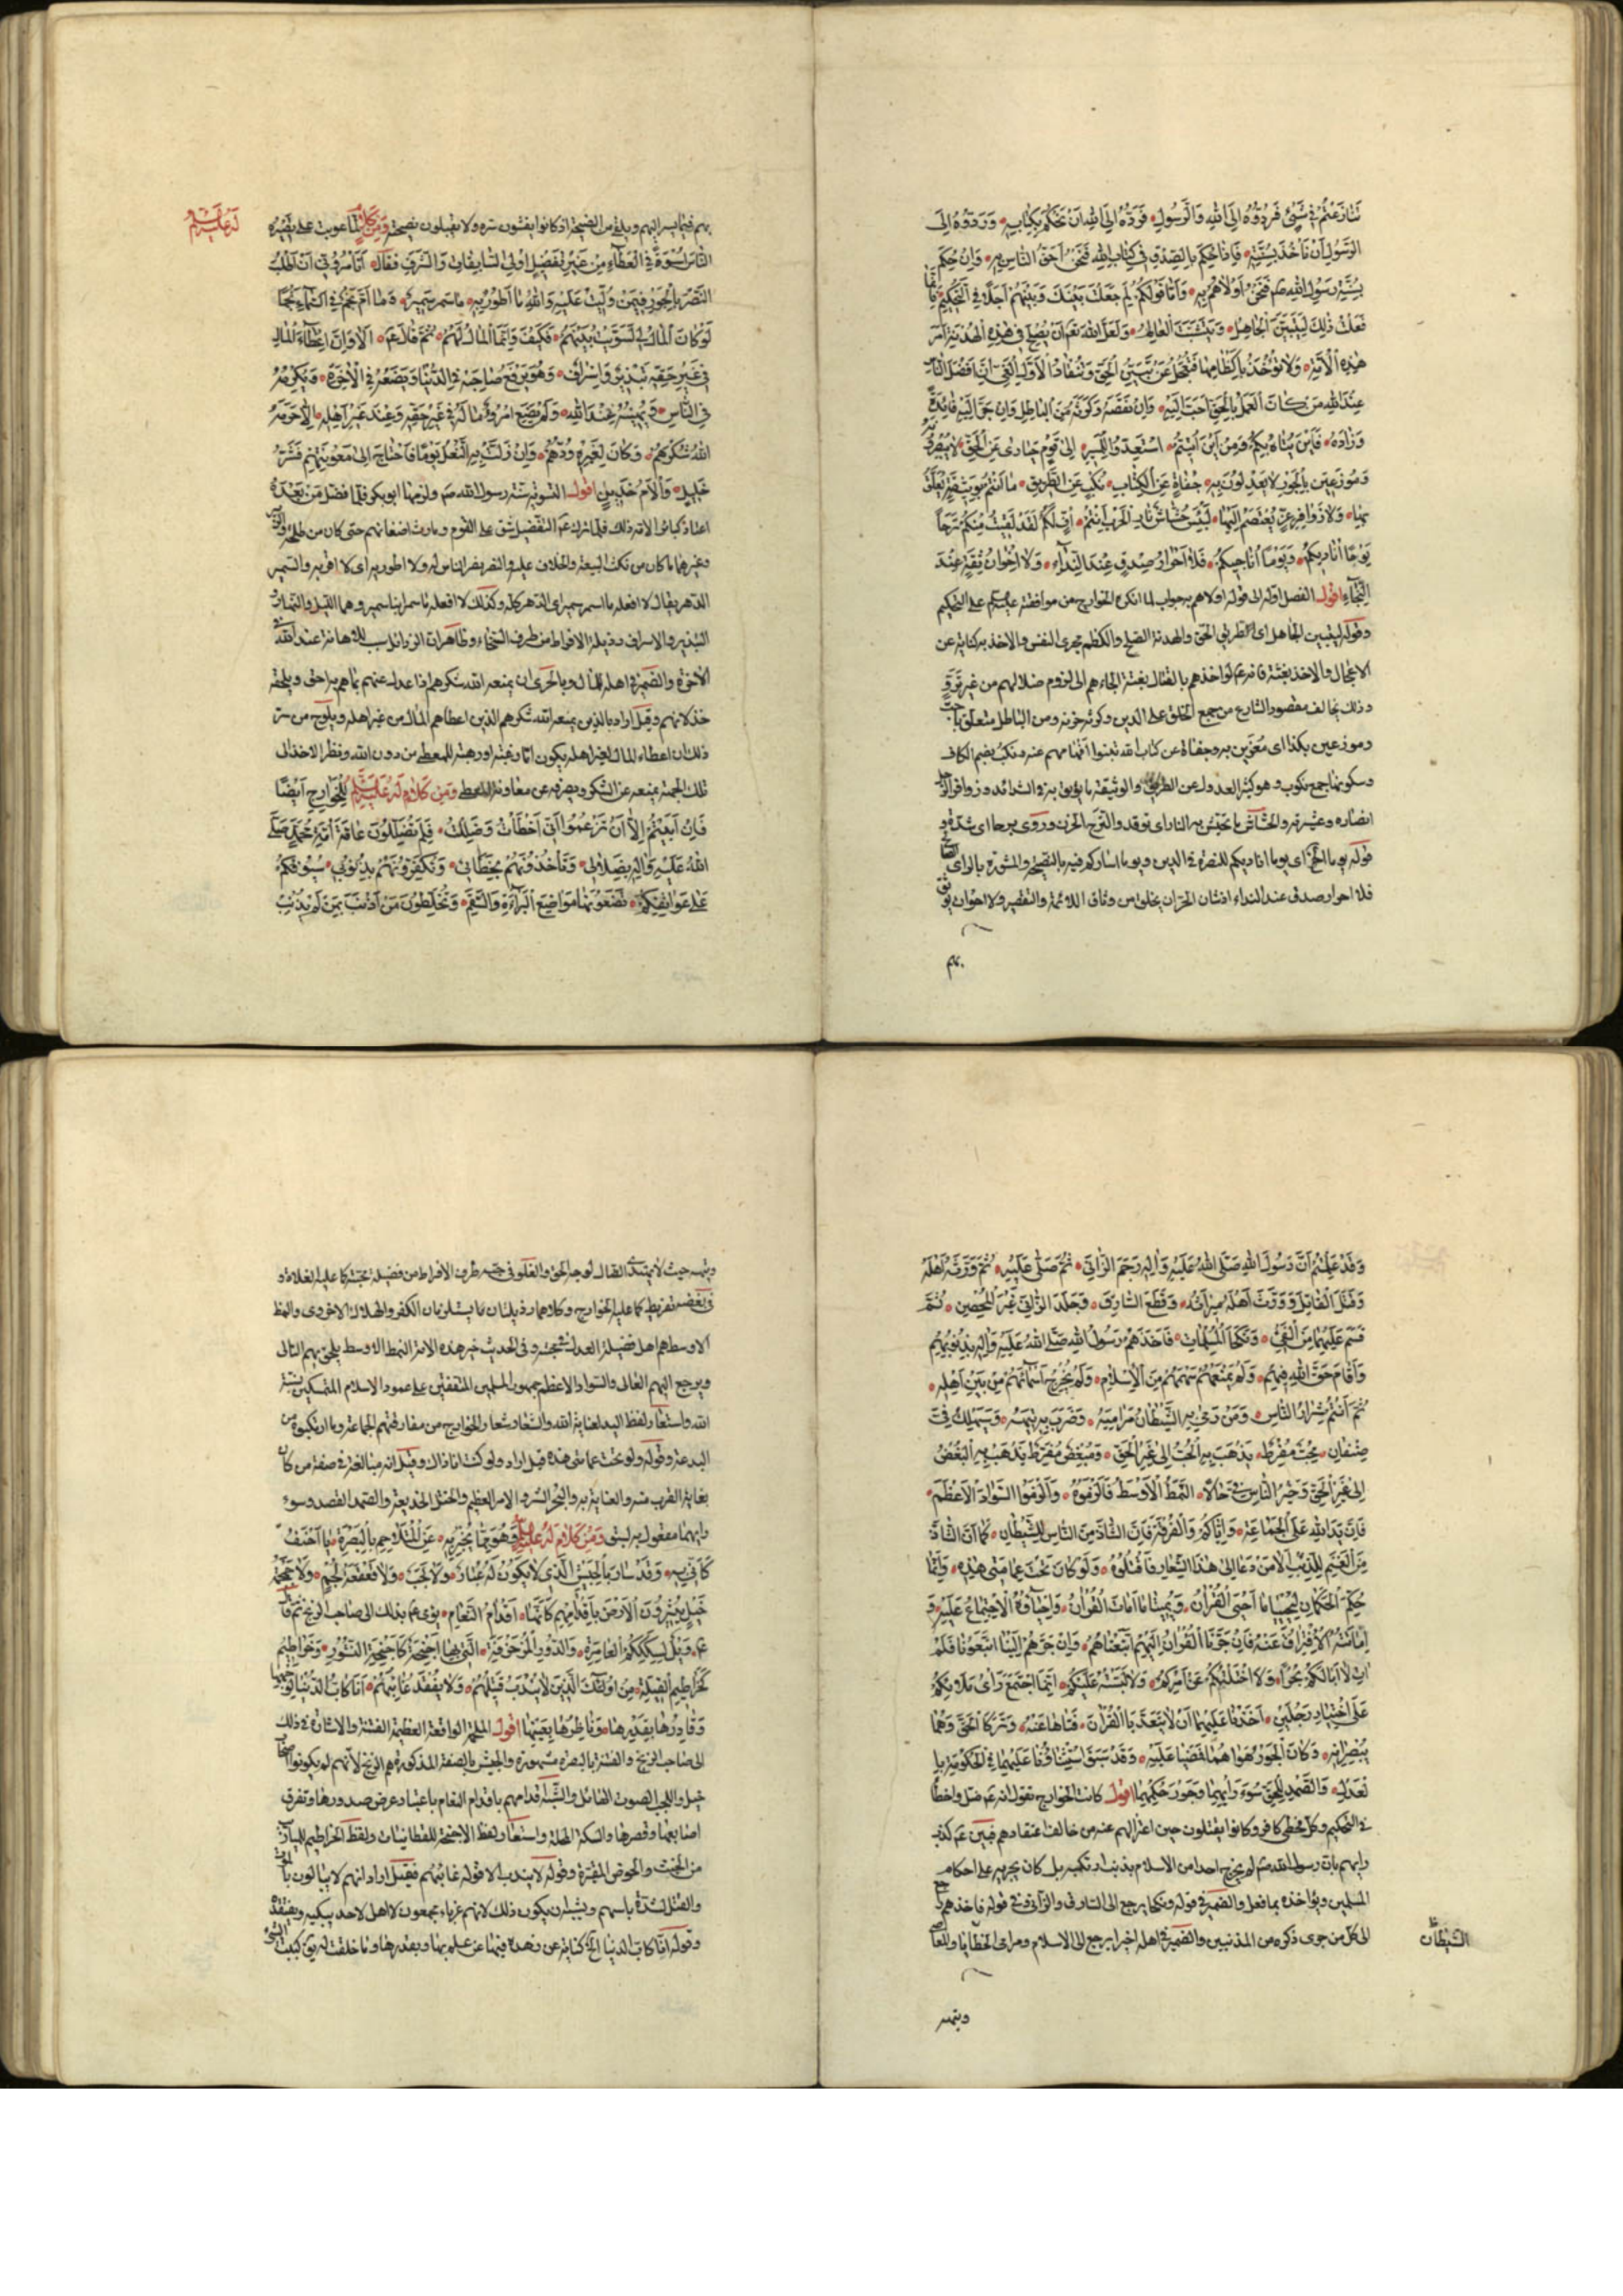 تنازعتم في شيء فردوه الى الله والرسول فرده الى الله ان نحكم بكتابه ورده الى
الرسول ان نأخذ بسنته فاذا حكم بالصدق في كتاب الله فنحن احق الناس به وان حكم
بسنة رسول الله صم فنحن اولاهم به واما قولكم لم جعلت بينك وبينهم اجلا في التحكيم فانما
فعلت ذلك ليتبين الجاهل ويتثبت العالم ولعل الله تعم ان يصلح في هذه الهدنة امر
هذه الامة ولا تؤخذ باكظامها فتعجل عن تبين الحق وتنقاد لاول الغي ان افضل الناس
عند الله من كان العمل بالحق احب اليه وان نقصه وكرثه من الباطل وان جر اليه فائدة
وزاده فاين يتاه بكم ومن اين اتيتم استعدوا للمسير الى قوم حيارى عن الحق لا يبصرونه
وموزعين بالجور لا يعدلون به جفاة عن الكتاب نكب عن الطريق ما انتم بوثيقة يعلق
بها ولا زوافر عز يعتصم اليها لبئس حشاش نار الحرب انتم اف لكم لقد لقيت منكم برحا
يوما اناديكم ويوما اناجيكم فلا احرار صدق عند النداء ولا اخوان ثقة عند
النجاء اقول الفصل اوله الى قوله اولاهم به جواب لما انكره الخوارج من موافقته عليه السلم على التحكيم
وقوله ليتبين الجاهل اى لطريق الحق والهدنة الصلح والكظم مجرى النفس والاخذ به كناية عن
الاعجال والاخذ بغتة فانه عم لو اخذهم بالقتال بغتة الجاءهم الى لزوم ضلالهم من غير ترو
وذلك يخالف مقصود الشارع من جمع الخلق على الدين وكرثه حزنه ومن الباطل متعلق باحب
وموزعين بكذا اى مغرين به وجفاة عن كتاب الله نبوا افهامهم عنه ونكب بضم الكاف
وسكونها جمع نكوب وهو كثير العدول عن الطريق والوثيقة ما يوثق به في الشدائد وزوافر الرجل
انصاره وعشيرته والحشاش ما تحش به النار اى توقد والترح الحزن وروى برحا اى شدة و
قوله يوما الخ اى يوما اناديكم للنصرة في الدين ويوما اشاركم فيه بالنصيحة والمشورة بالراى الصالح
فلا احرار صدق عند النداء اذ شان الحران يخلوا من وثاق اللائمة والتقصير ولا اخوان يوثق
بهم
بهم فيما يسر اليهم ويلقى من النصيحة اذ كانوا يفشون سره ولا يقبلون نصيحة ومن كلام له عليه السلم لما عوتب على تصييره
الناس اسوة في العطاء من غير تفضيل اولي السابقات والشرف فقال اتامروني ان اطلب
النصر بالجور فيمن وليت عليه والله ما اطور به ما سمر سمير وما ام نجم في السماء نجما
لو كان المال لي لسويت بينهم فكيف وانما المال لهم ثم قال عم الا وان اعطاء المال
في غير حقه تبذير واسراف وهو يرفع صاحبه في الدنيا ويضعه في الاخرة ويكرمه
في الناس ويهينه عند الله ولم يضع امرؤ ماله في غير حقه وعند غير اهله الا حرمه
الله شكرهم وكان لغيره ودهم وان زلت به النعل يوما فاحتاج الى معونتهم فشر
خليل والام خدين اقول التسوية سنة رسول الله صم ولزمها ابو بكر فلما فضل من بعده
اعتاد كبار الامة ذلك فلما ترك عم التفضيل شق على القوم وبارت اضغانهم حتى كان من طلحة والزبير
وغيرهما ما كان من نكث البيعة والخلاف عليه والتفريق الناس له ولا اطور به اى لا اقربه والسمير
الدهر يقال لا افعله ما سمر سمير اى الدهر كله وكذلك لا افعله ما سمر ابنا سمير وهما الليل والنهار و
التبذير والاسراف رذيلة الافراط من طرف السخاء وظاهر ان الرذائل سبب للاهانة عند الله في
الاخرة والضمير في اهله للمال وبالحرى ان يمنعه الله شكرهم اذا عدل عنهم بما هم به احق ويلحقه
خذلانهم وقيل اراد بالذين يمنعه الله شكرهم الذين اعطاهم المال من غير اهله ويلوح من سر
ذلك ان اعطاء المال لغير اهله يكون اما رغبة او رهبة للمعطى من دون الله ونظر الاخذ الى
تلك الجهة يمنعه عن الشكر ويصرفه عن معاونة المعطى ومن كلام له عليه السلم للخوارج ايضا
فان ابيتم الا ان تزعموا اني اخطأت وضللت فلم تضللون عامة امة محمد صلى
الله عليه واله بضلالي وتأخذونهم بخطائي وتكفرونهم بذنوبي سيوفكم
على عواتقكم تضعونها مواضع البراءة والسقم وتخلطون من اذنب بمن لم يذنب
له عليه السلم
وقد علمتم ان رسول الله صلى الله عليه واله رجم الزاني ثم صلى عليه ثم ورثه اهله
وقتل القاتل وورث اهله ميراثه وقطع السارق وجلد الزاني غير المحصن ثم
قسم عليهما من الفيء ونكحا المسلمات فاخذهم رسول الله صلى الله عليه واله بذنوبهم
واقام حق الله فيهم ولم يمنعهم سهمهم من الاسلام ولم يخرج اسمائهم من بين اهله
ثم انتم شرار الناس ومن رمى به الشيطان مراميه وضرب به تيهه وسيهلك في
صنفان محب مفرط يذهب به الحب الى غير الحق ومبغض مفرط يذهب به البغض
الى غير الحق وخير الناس في حالا النمط الاوسط فالزموه والزموا السواد الاعظم
فان يد الله على الجماعة واياكم والفرقة فان الشاذ من الناس للشيطان كما ان الشاذة
من الغنم للذئب الا من دعا الى هذا الشعار فاقتلوه ولو كان تحت عمامتي هذه وانما
حكم الحكمان ليحييا ما احيى القران ويميتا ما امات القران واحياؤه الاجتماع عليه و
اماتته الافتراق عنه فان جرنا القران اليهم اتبعناهم وان جرهم الينا اتبعونا فلم
ات لا ابا لكم بجرا ولا ختلتكم عن امركم ولا لبسته عليكم انما اجتمع راى ملائكم
على اختيار رجلين اخذنا عليهما ان لا يتعديا القران فتاها عنه وتركا الحق وهما
يبصرانه وكان الجور هواهما فمضيا عليه وقد سبق استثناؤنا عليهما في الحكومة با
لعدل والصمد للحق سوء رايهما وجور حكمهما اقول كانت الخوارج تقول انه عم ضل واخطأ
في التحكيم وكل مخطئ كافر وكانوا يقتلون حين اعتزالهم عنه من خالف اعتقادهم فبين عم كذب
رايهم بان رسول الله صم لم يخرج احدا من الاسلام بذنب ارتكبه بل كان يجريه على احكام
المسلمين ويؤاخذه بما فعل والضمير في قوله ونكحا يرجع الى السارق والزاني وفي قوله فاخذهم يرجع
الى كل من جرى ذكره من المذنبين والضمير في اهله اخيرا يرجع الى الاسلام ومرامى الخطايا والمعاصى
الشيطان
وبتيهه
وبتيهه حيث لا يهتدى الضال لوجه الحق والغلو في حبه طرف الافراط من فضيلة محبته كما عليه الغلاة و
في بغضه تفريط كما عليه الخوارج وكلاهما رذيلتان مما يستلزمان الكفر والهلاك الاخروى والنمط
الاوسط هم اهل فضيلة العدل في محبته وفي الحديث خير هذه الامة النمط الاوسط يلحق بهم التالى
ويرجع اليهم الغالى والسواد الاعظم جمهور المسلمين المتفقين على عمود الاسلام المتمسكين بسنة
الله واستعار لفظ اليد لعناية الله والشعار شعار الخوارج من مفارقتهم الجماعة وما ارتكبوه من
البدعة وقوله ولو تحت عمامتى هذه قيل اراد ولو كنت انا ذاك وقيل انه مبالغة في صفة من كان
بغاية القرب منه والعناية به والبجر الشر والامر العظيم والختل الخديعة والصمد القصد وسوء
رايهما مفعول به لسبق ومن كلام له عليه السلم وهو مما يخبر به عن الملاحم بالبصرة يا احنف
كاني به وقد سار بالجيش الذي لا يكون له غبار ولا لجب ولا قعقعة لجم ولا حمحمة
خيل يثيرون الارض باقدامهم كانها اقدام النعام يومى عم بذلك الى صاحب الزنج ثم قال
عم ويل لسكككم العامرة والدور المزخرفة التي لها اجنحة كاجنحة النسور وخراطيم
كخراطيم الفيلة من اولئك الذين لا يندب قتيلهم ولا يفقد غائبهم انا كاب الدنيا لوجهها
وقادرها بقدرها وناظرها بعينها اقول الملحمة الواقعة العظيمة الفتنة والاشارة في ذلك
الى صاحب الزنج والفتنة بالبصرة مشهورة والجيش بالصفة المذكورة هم الزنج لانهم لم يكونوا اصحاب
خيل واللجب الصوت الهائل والتشبيه اقدامهم باقدام النعام باعتبار عرض صدورها وتفرق
اصابعها وقصرها والسكة المحلة واستعار لفظ الاجنحة للقطانيات ولفظ الخراطيم للميازيب
من الخشب والحوض المقيرة وقوله لا يندب الا قوله غائبهم فقيل اراد انهم لا يبالون بالموت
والقتل لشدة باسهم ويشبه ان يكون ذلك لانهم غرباء يجمعون لا اهل لاحد يبكيه ويفتقده
وقوله انا كاب الدنيا الخ كناية عن زهده فيها عن علم بها وبقدرها وما خلقت له يق كببت الشئ